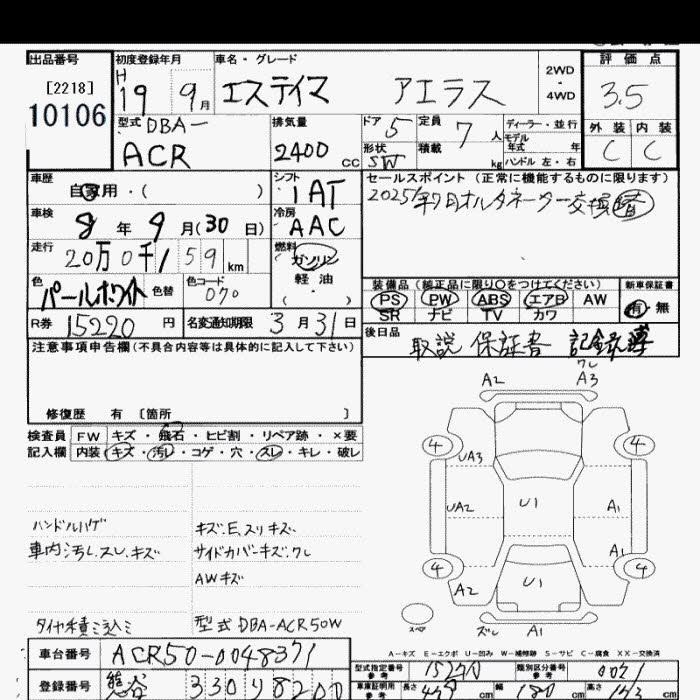 出品番号
[2218]
10106
初度登録年月
H 19 9月
車名・グレード
エスティマ アエラス
2WD
・
4WD
評価点
3.5
外装 内装
C C
型式 DBA-
ACR
排気量
2400 cc
ドア 5
形状 SW
定員 7人
積載 kg
ディーラー・並行
モデル年式 年
ハンドル 左・右
車歴
自家用・( )
車検
8年 9月(30日)
走行
20万0千159km
色
パールホワイト 色替
色コード
070
シフト
IAT
冷房
AAC
燃料
ガソリン
軽油
( )
セールスポイント (正常に機能するものに限ります)
2025年7月オルタネーター交換替
装備品 (純正品に限り○をつけてください)
PS PW ABS エアB AW
SR ナビ TV カワ
新車保証書
有・無
R券 15220円
名変通知期限 3月31日
後日品
取説 保証書 記録簿
注意事項申告欄(不具合内容等は具体的に記入して下さい)
修復歴 有 [箇所 ]
検査員記入欄
FW キズ・飛石・ヒビ割・リペア跡・×要
内装 キズ・汚レ・コゲ・穴・スレ・キレ・破レ
ハンドルハゲ
車内汚レ.スレ.キズ
タイヤ積ミ込ミ
キズ.E.スリキズ
サイドカバーキズ.ワレ
AWキズ
型式DBA-ACR50W
A2
ワレ
A3
4 4
UA3
UA2
U1
A1
A1
4 4
A2
U1
スペア
ズレ A1
A-キズ E-エクボ U-凹み W-補修跡 S-サビ C-腐食 XX-交換済
車台番号
ACR50-0048371
登録番号
熊谷 330 リ 8200
型式指定番号 参考
類別区分番号 参考
車庫証明用 参考
長さ cm 幅 180 cm 高さ cm